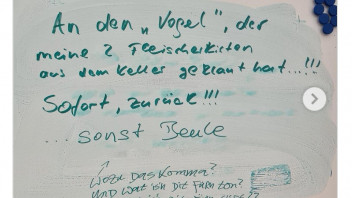 An den „Vogel", der
meine 2 Fleischerkisten
aus dem Keller geklaut hat....!!!
Sofort, zurück!!!
... sonst Beule
Wozu das Komma?
und wat is'n dit für'n ton?